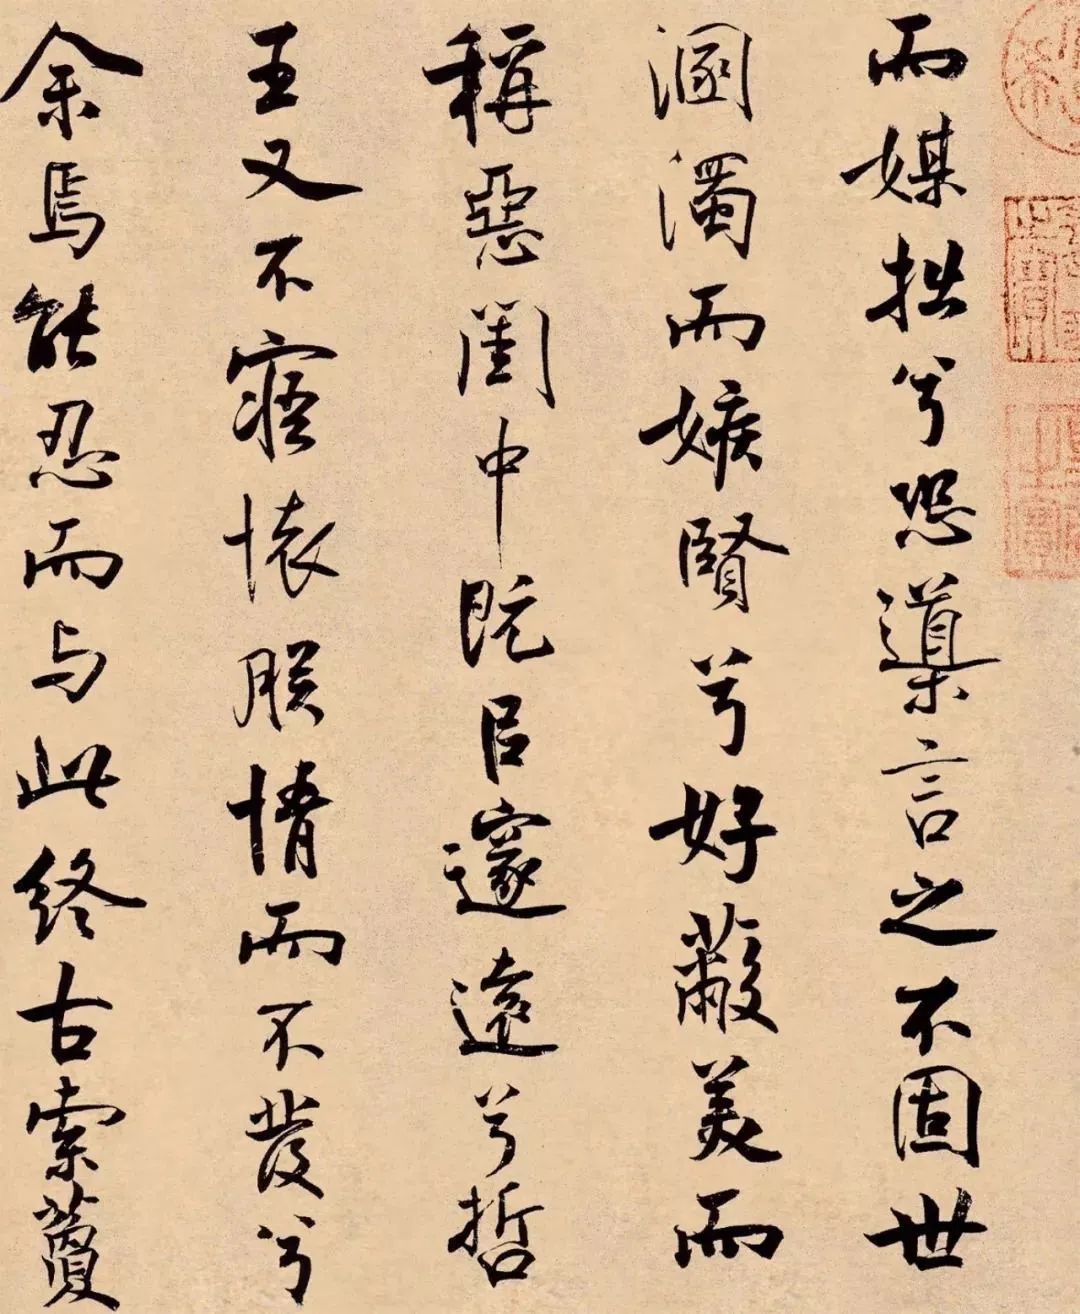 而媒拙兮恐導言之不固世
溷濁而嫉賢兮好蔽美而
稱惡閨中既㠯邃遠兮哲
王又不寤懷朕情而不發兮
余焉能忍而与此終古索藑